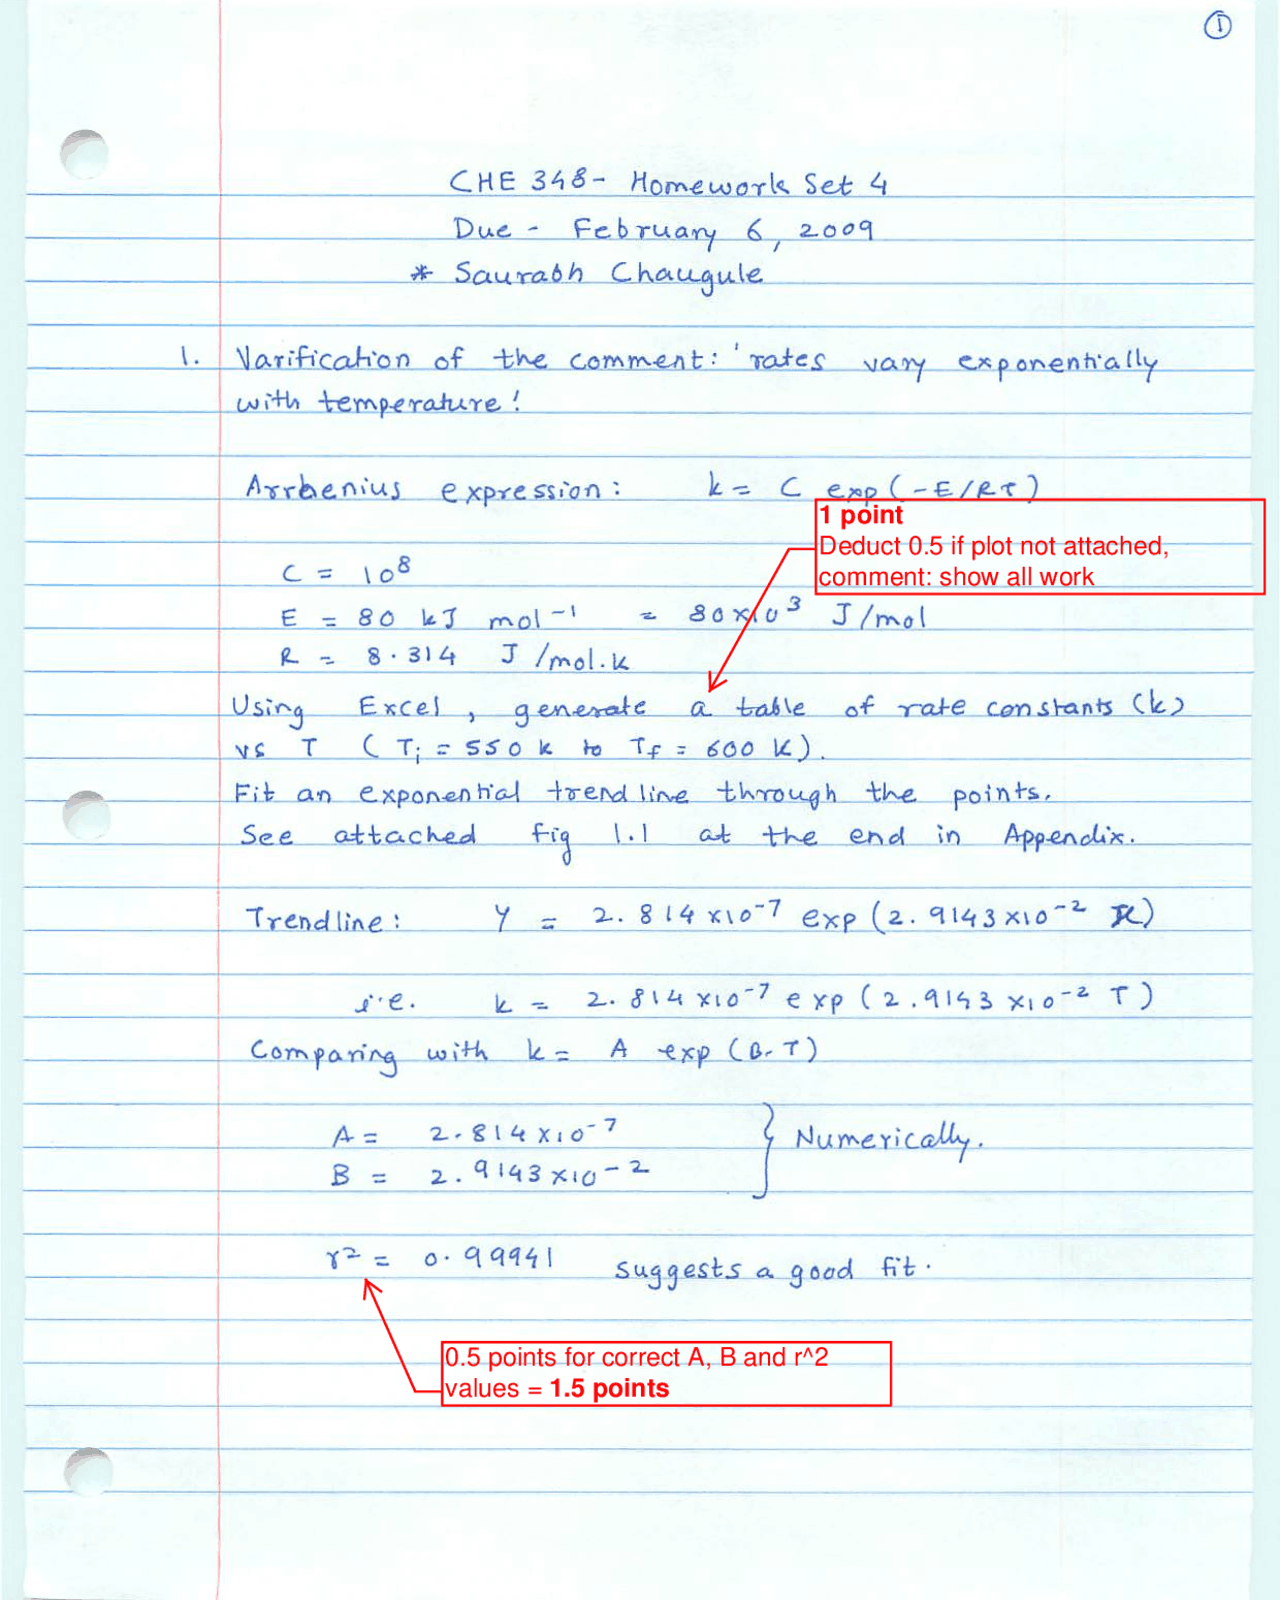 ①
CHE 348- Homework Set 4
Due - February 6, 2009
* Saurabh Chaugule
1. Varification of the comment: 'rates vary exponentially
with temperature!
Arrhenius expression: k = C exp(-E/RT)
1 point
Deduct 0.5 if plot not attached,
comment: show all work
C = 10⁸
E = 80 kJ mol⁻¹ = 80×10³ J/mol
R = 8.314 J/mol.k
Using Excel, generate a table of rate constants (k)
vs T (Tᵢ = 550 k to T_f = 600 K).
Fit an exponential trendline through the points.
See attached fig 1.1 at the end in Appendix.
Trendline: Y = 2.814×10⁻⁷ exp(2.9143×10⁻² x)
i.e. k = 2.814×10⁻⁷ exp(2.9143×10⁻² T)
Comparing with k = A exp(B.T)
A = 2.814×10⁻⁷
B = 2.9143×10⁻²
} Numerically.
r² = 0.99941 suggests a good fit.
0.5 points for correct A, B and r^2
values = 1.5 points